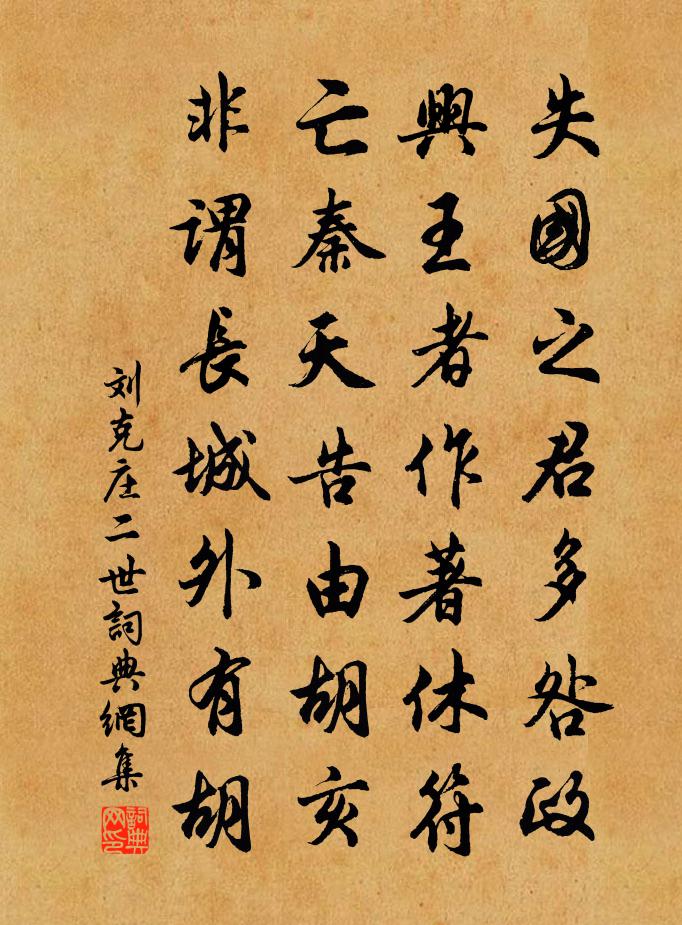 失國之君多咎政
興王者作著休符
亡秦天告由胡亥
非謂長城外有胡
刘克庄二世詞典網集
詞典网印